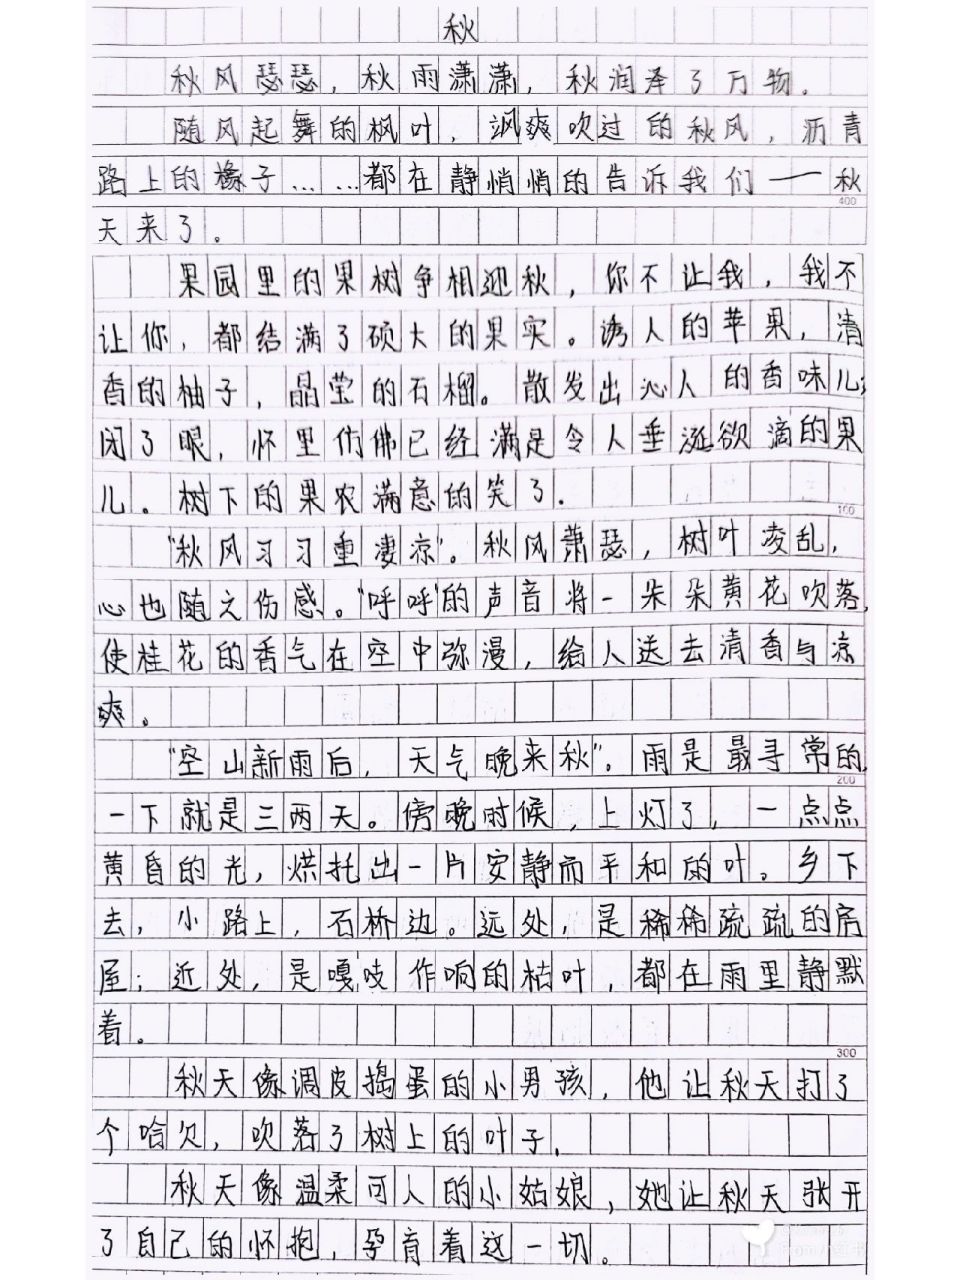 秋
秋风瑟瑟，秋雨潇潇，秋润泽了万物.
随风起舞的枫叶，飒爽吹过的秋风，沥青
路上的橡子……都在静悄悄的告诉我们——秋
400
天来了。
果园里的果树争相迎秋，你不让我，我不
让你，都结满了硕大的果实。诱人的苹果，清
香的柚子，晶莹的石榴。散发出沁人的香味儿；
闭了眼，怀里仿佛已经满是令人垂涎欲滴的果
儿。树下的果农满意的笑了.
100
“秋风习习重凄凉”。秋风萧瑟，树叶凌乱，
心也随之伤感。“呼呼”的声音将一朵朵黄花吹落，
使桂花的香气在空中弥漫，给人送去清香与凉
爽。
“空山新雨后，天气晚来秋”。雨是最寻常的，
200
一下就是三两天。傍晚时候，上灯了，一点点
黄昏的光，烘托出一片安静而平和的叶。乡下
去，小路上，石桥边。远处，是稀稀疏疏的房
屋；近处，是嘎吱作响的枯叶，都在雨里静默
着。
300
秋天像调皮捣蛋的小男孩，他让秋天打了
个哈欠，吹落了树上的叶子.
秋天像温柔可人的小姑娘，她让秋天张开
了自己的怀抱，孕育着这一切。